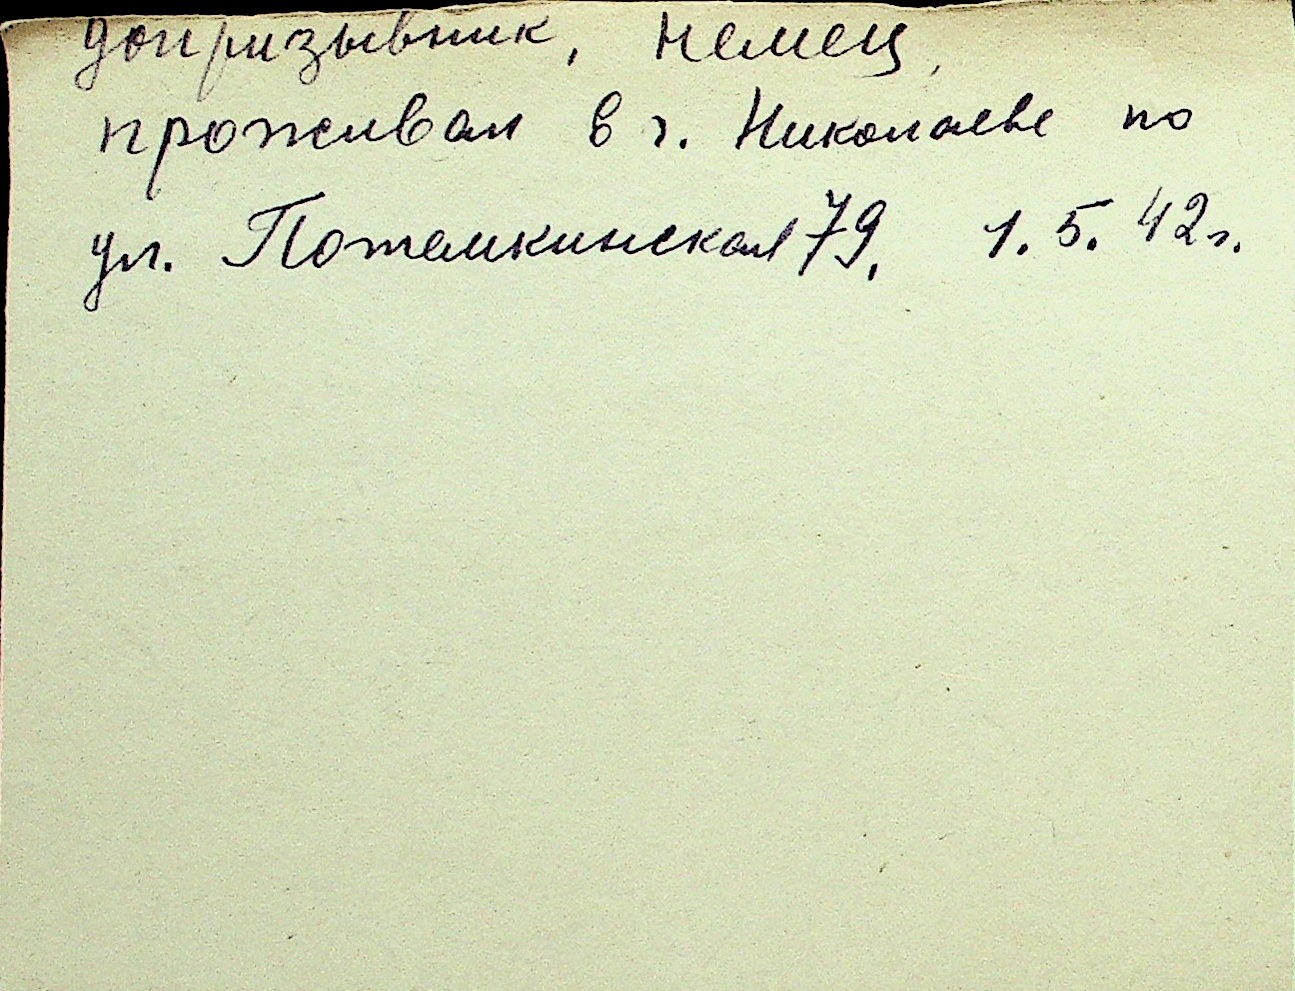 допризывник, немец,
проживал в г. Николаеве по
ул. Потемкинская 79. 1. 5. 42 г.